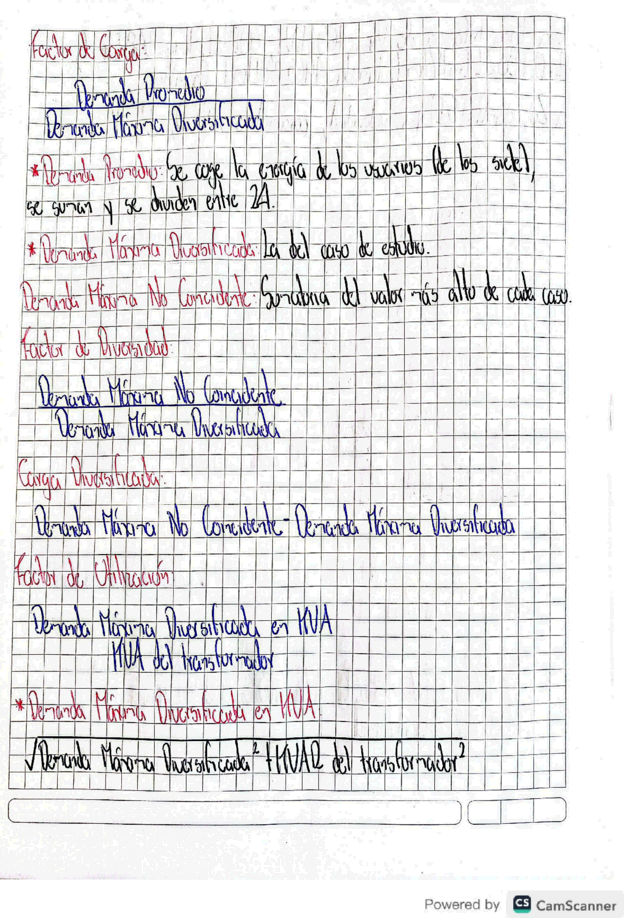 Factor de Carga:
Demanda Promedio
Demanda Máxima Diversificada
*Demanda Promedio: Se coge la energía de los usuarios (de los siete),
se suman y se dividen entre 24.
*Demanda Máxima Diversificada: La del caso de estudio.
Demanda Máxima No Coincidente: Sumatoria del valor más alto de cada caso.
Factor de Diversidad:
Demanda Máxima No Coincidente
Demanda Máxima Diversificada
Carga Diversificada:
Demanda Máxima No Coincidente - Demanda Máxima Diversificada
Factor de Utilización:
Demanda Máxima Diversificada en KVA
KVA del transformador
*Demanda Máxima Diversificada en KVA:
√Demanda Máxima Diversificada² + KVAR del transformador²
Powered by CS CamScanner